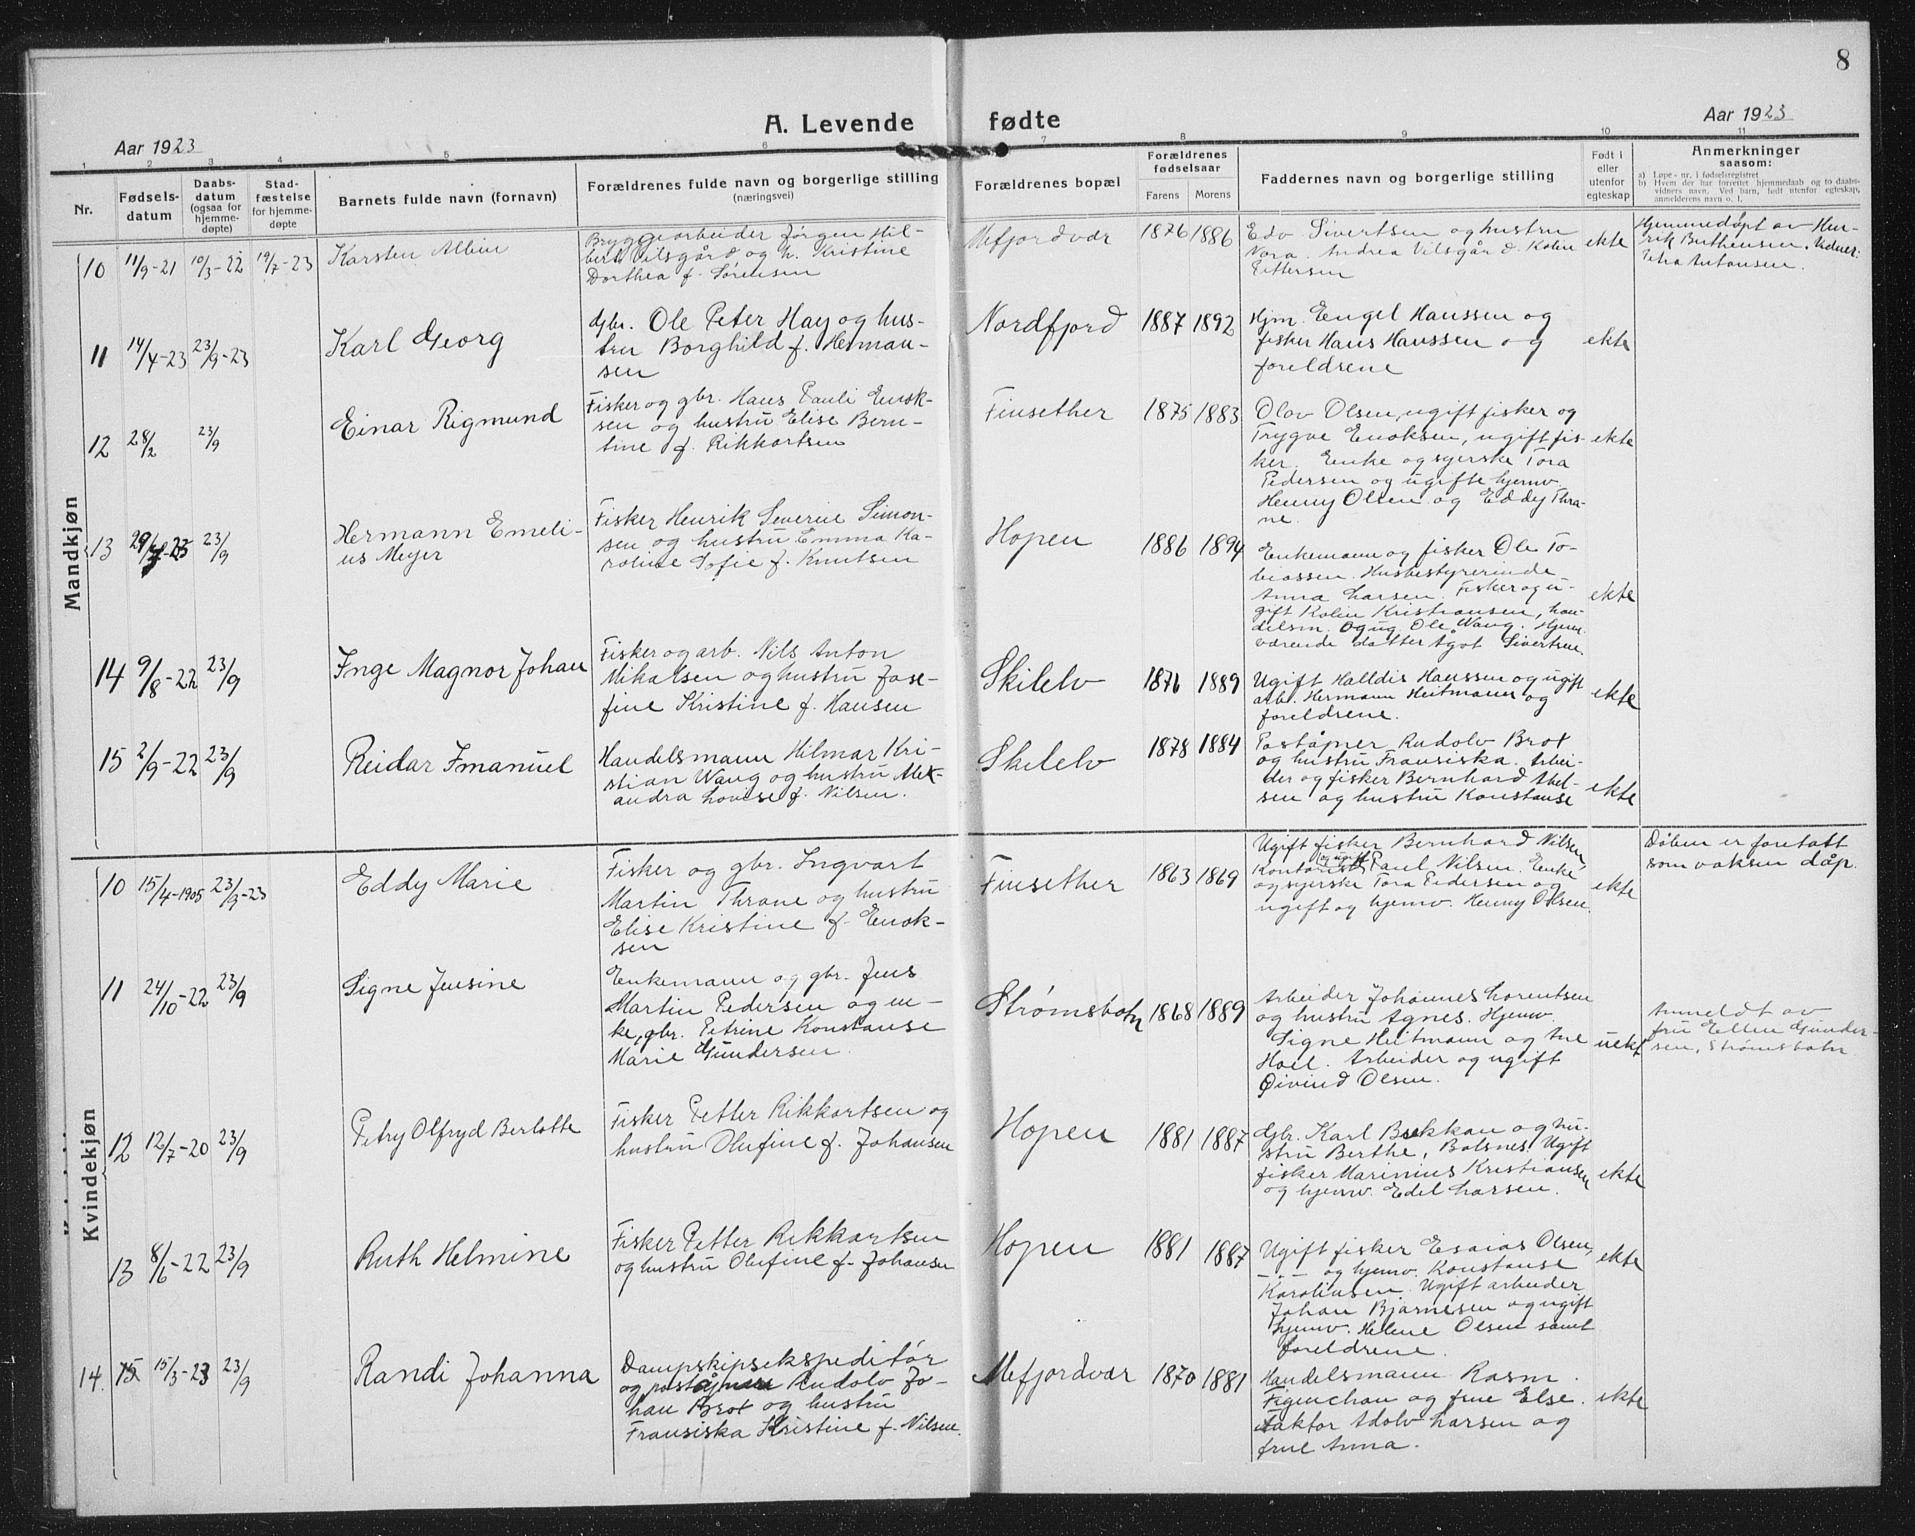 8
A. Levende fødte
Aar 1923
Aar 1923
1 2 3 4 5 6 7 8 9 10 11
Nr.
Fødsels-
datum
Daabs-
datum
(ogsaa for
hjemme-
døpte)
Stad-
fæstelse
for hjemme-
døpte
Barnets fulde navn (fornavn)
Forældrenes fulde navn og borgerlige stilling
(næringsvei)
Forældrenes bopæl
Forældrenes
fødselsaar
Farens
Morens
Faddernes navn og borgerlige stilling
Født i
eller
utenfor
egteskap
Anmerkninger
saasom:
a) Løpe-nr. i fødselsregistret
b) Hvem der har forrettet hjemmedaab og to daabs-
vidners navn. Ved barn, født utenfor egteskap,
anmelderens navn o. l.
Mandkjøn
10 11/9-21 10/3-22 19/7-23
Karsten Albin
Bryggearbeider Jørgen Hil-
bert Vilsgård og h. Kristine
Dorthea f. Sørensen
Mefjordvær
1876 1886
Edv Sivertsen og hustru
Nora. Andrea Vilsgård. Kolin
Pettersen
ekte
Hjemmedøpt av Hen-
rik Berthensen. Vidner:
Petra Antonsen.
11 14/4-23 23/9-23
Karl Georg
Gbr. Ole Peter Hay og hus-
tru Borghild f. Herman-
sen
Nordfjord
1887 1892
Hjm. Engel Hanssen og
fisker Hans Hanssen og
foreldrene
ekte
12 28/2 23/9
Einar Rigmund
Fisker og gbr. Hans Pauli Enok-
sen og hustru Elise Bern-
tine f. Rikkartsen
Finsether
1875 1883
Olav Olsen, ugift fisker og
Trygve Enoksen, ugift fis-
ker. Enke og syerske Tora
Pedersen og ugifte hjemv.
Henny Olsen og Eddy Thra-
ne.
ekte
13 29/7-23 23/9
Hermann Emeli-
us Meyer
Fisker Henrik Severin Simon-
sen og hustru Emma Ka-
roline Sofie f. Knutsen
Hopen
1886 1894
Enkemann og fisker Ole To-
biassen. Husbestyrerinde
Anna Larsen. Fisker og u-
gift Kolin Kristiansen, han-
delsm. og ug. Ole Wang. Hjem-
værende datter Ågot Sivertsen.
ekte
14 9/8-22 23/9
Inge Magnor Johan
Fisker og arb. Nils Anton
Mikalsen og hustru Jose-
fine Kristine f. Hansen
Skilelv
1876 1889
Ugift Halldis Hanssen og ugift
arb. Hermann Heitmann og
foreldrene.
ekte
15 2/9-22 23/9
Reidar Imanuel
Handelsmann Hilmar Kri-
stian Wang og hustru Alek-
sandra Lovise f. Nilsen.
Skilelv
1878 1884
Poståpner Rudolv Brox
og hustru Fransiska. Arbei-
der og fisker Bernhard Abel-
sen og hustru Konstanse
ekte
Kvindekjøn
10 15/4-1905 23/9-23
Eddy Marie
Fisker og gbr. Ingvart
Martin Thrane og hustru
Elise Kristine f. Enok-
sen
Finsether
1863 1869
Ugift fisker Bernhard Nilsen,
Kontorist og ugift Paul Nilsen. Enke
og syerske Tora Pedersen og
ugift og hjemv. Henny Olsen.
ekte
Dåben er foretatt
som voksen dåp.
11 24/10-22 23/9
Signe Jensine
Enkemann og gbr. Jens
Martin Pedersen og en-
ke, gbr. Petrine Konstanse
Marie Gundersen.
Strømsbotn
1868 1889
Arbeider Johannes Lorentsen
og hustru Agnes. Hjemv.
Signe Heitmann og Ane
Hoel. Arbeider og ugift
Øivind Olsen.
uekt
Anmeldt av
fru Ellen Gunder-
sen, Strømsbotn
12 12/7-20 23/9
Petry Olfryd Berlotte
Fisker Petter Rikkartsen og
hustru Olufine f. Johansen
Hopen
1881 1887
Gbr. Karl Brekkan og hu-
stru Berthe, Bolsnes. Ugift
fisker Marinius Kristiansen
og hjemv. Edel Larsen.
ekte
13 8/6-22 23/9
Ruth Helmine
Fisker Petter Rikkartsen
og hustru Olufine f. Johansen
Hopen
1881 1887
Ugift fisker Esaias Olsen,
— . — og hjemv. Konstanse
Karolinsen. Ugift arbeider
Johan Bjarnesen og ugift
hjemv. Helene Olsen samt
foreldrene.
ekte
14. 15 15/3-23 23/9
Randi Johanna
Dampskipsekspeditør
og poståpner Rudolv Jo-
han Brox og hustru
Fransiska Kristine f. Nilsen.
Mefjordvær
1870 1881
Handelsmann Rasm.
Figenchau og frue Else.
Faktor Adolv Larsen og
frue Anna.
ekte